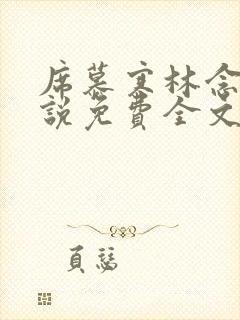 席慕寒林念
說免費全文
頁慧